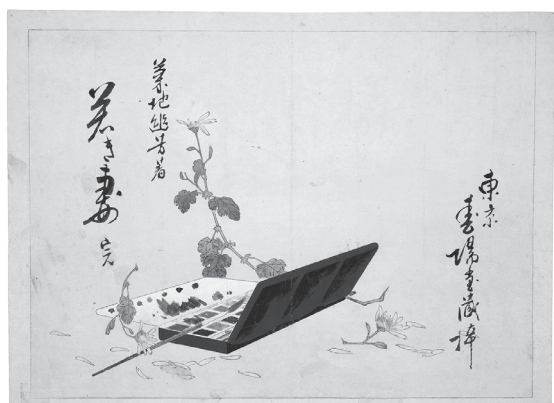 東京
春陽堂蔵梓
菊地幽芳著
若き妻 完